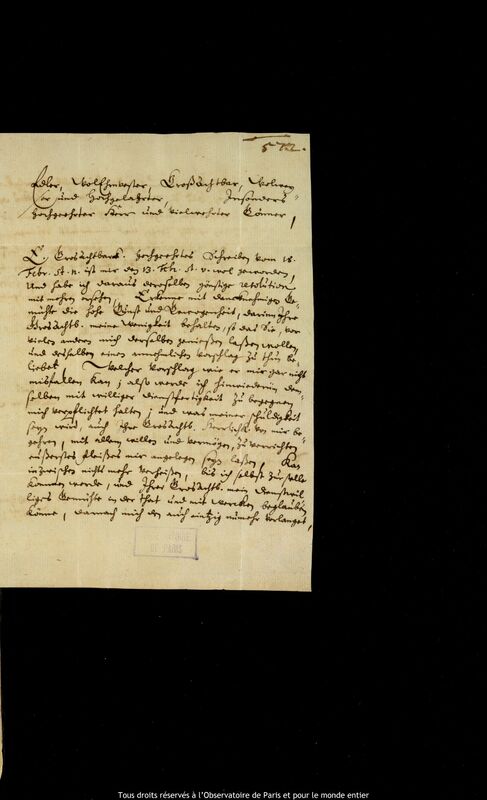 572.
Edler, WolEhrnvester, Großachtbar, Wolwei-
ser und Hochgelahrter, Insonders
Hochgeehrter Herr und vielwehrter Gönner,
E. Großachtbark. Hochgeehrtes Schreiben vom 18.
Febr. st. n. ist mir den 13. st. v. wol geworden,
Und habe ich daraus deroselben günstige resolution
mit mehren ersehen, Erkenne mit dancknehmigen Ge-
müthe die hohe Gunst und Gewogenheit, darinn Ihre
Großachtb. meine Wenigkeit behalten, so das Sie, vor
vielen andern mich derselben genießen laßen wollen,
und deshalben einen annehmlichen Vorschlag zu thun be-
liebet, Welcher Vorschlag wie er mir gar nicht
misfallen kan, also werde ich hinwiederumb den-
selben mit williger dienstfertigkeit zu begegnen
mich verpflichtet halten, und was meiner schüldigkeit
seyn wird, auch Ihre Großachtb. Herrlichk. von mir be-
gehren, mit allem willen und vermögen, zu verrichten
eußerstes fleißes mir angelegen seyn laßen, Kan
inzwischen nichts mehr verheißen, bis ich selbst zur stelle
kommen werde, und Ihrer Großachtb. mein dienstwil-
liges Gemühte in der that und mit wercken beglauben
könne, darnach mich den auch eintzig nunmehr verlanget,
DE PARIS
Tous droits réservés à l'Observatoire de Paris et pour le monde entier